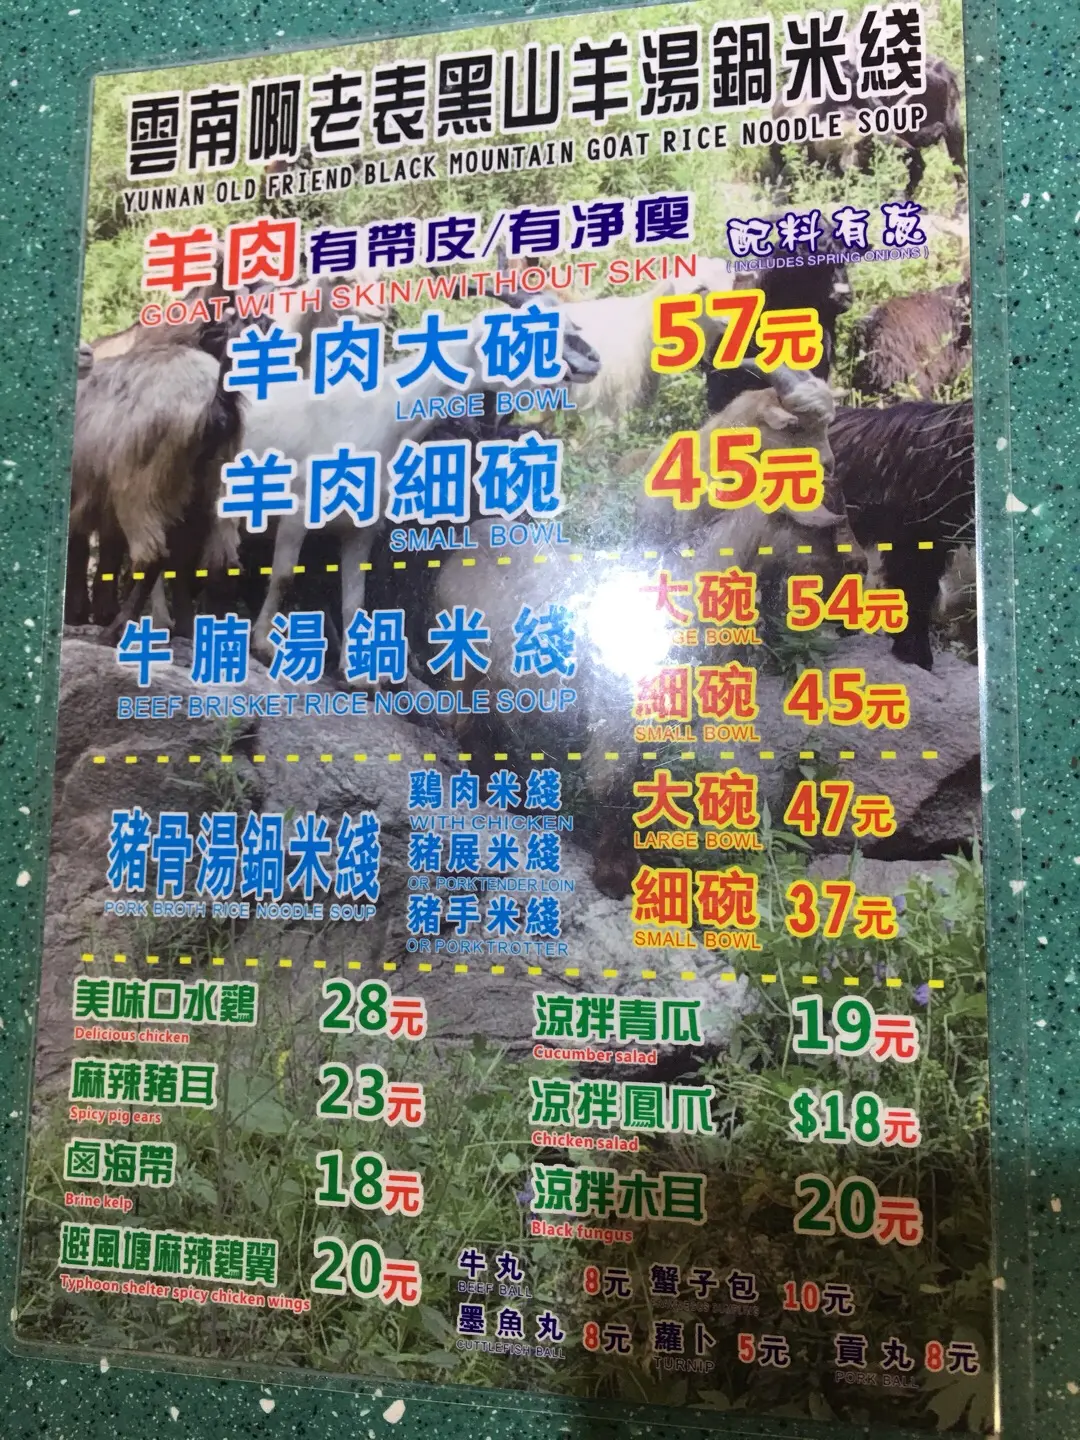 雲南啊老表黑山羊湯鍋米綫
YUNNAN OLD FRIEND BLACK MOUNTAIN GOAT RICE NOODLE SOUP
羊肉有帶皮/有净瘦 配料有葱
GOAT WITH SKIN/WITHOUT SKIN (INCLUDES SPRING ONIONS)
羊肉大碗 57元
LARGE BOWL
羊肉細碗 45元
SMALL BOWL
牛腩湯鍋米綫
BEEF BRISKET RICE NOODLE SOUP
大碗 54元
BOWL
細碗 45元
SMALL BOWL
豬骨湯鍋米綫
PORK BROTH RICE NOODLE SOUP
鷄肉米綫
WITH CHICKEN
豬展米綫
OR PORKTENDERLOIN
豬手米綫
OR PORK TROTTER
大碗 47元
LARGE BOWL
細碗 37元
SMALL BOWL
美味口水鷄 28元
Delicious chicken
麻辣豬耳 23元
Spicy pig ears
鹵海帶 18元
Brine kelp
避風塘麻辣鷄翼 20元
Typhoon shelter spicy chicken wings
涼拌青瓜 19元
Cucumber salad
凉拌鳳爪 $18元
Chicken salad
涼拌木耳 20元
Black fungus
牛丸 8元 蟹子包 10元
BEEF BALL
墨魚丸 8元 蘿卜 5元 貢丸 8元
CUTTLEFISH BALL TURNIP PORK BALL